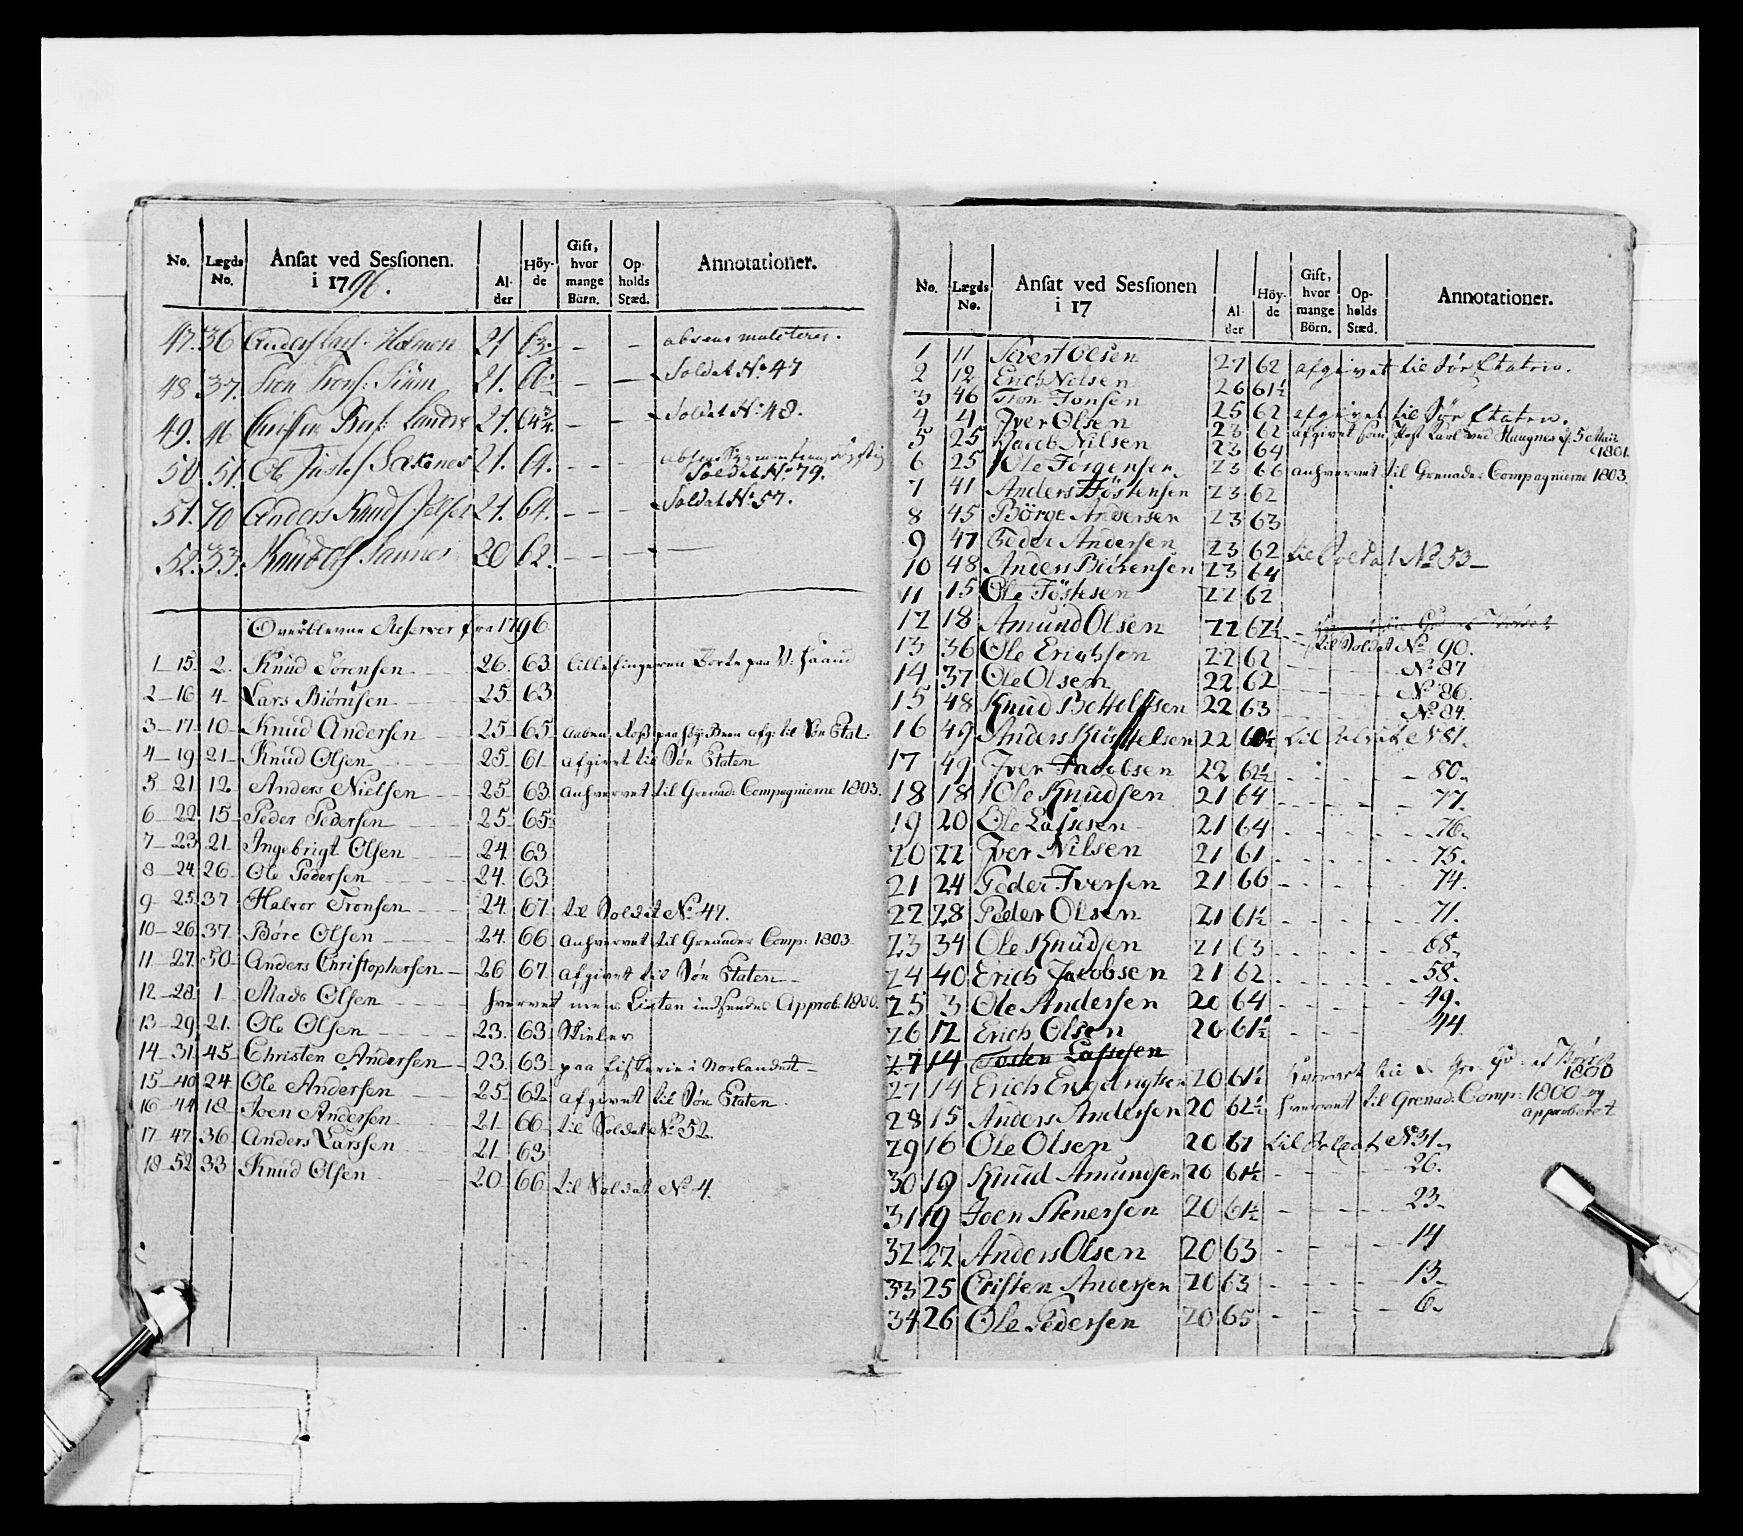 No. Lægds No. Ansat ved Sessionen. i 1796. Alder Höyde Gift, hvor mange Börn. Opholds Stæd. Annotationer.
47. 36 Holmen 21 63.
48 37. Tron Trons: 21. Soldat No 47
49. 46 21. Soldat No 48.
50 51. Ole 21. 64. Soldat No 79.
51. 70 Anders Knuds 21. 64. Soldat No 57.
52. 33. Knud Ols 20 62.
Overblevne Reserver fra 1796
1 15. 2. Knud Sörensen 26. 63 lille fingeren Borte paa V: Haand
2 16 4 Lars Biörnsen 25 63
3 17 10 Knud Andersen 25 65 afg: til Söe Etat.
4 19 21 Knud Olsen 25 61 afgivet til Söe Etaten
5 21 12 Anders Nielsen 25 63 anhvervet til Grenad: Compagnierne 1803.
6 22 15 Peder Pedersen 25 65
7 23 21 Ingebrigt Olsen 24 63
8 24 26 Ole Pedersen 24. 63
9 25 37 Halvor Tronsen 24. 67 til Soldat No 47.
10 26 37. Böre Olsen 24. 66 anhvervet til Grenander Comp: 1803
11 27 50 Anders Christophersen 26 67 afgivett til Söe Etaten
12 28 1 Mads Olsen hvervet mens Listen indsendes Approb. 1800.
13 29 21. Ole Olsen 23. 63
14 31 45 Christen Andersen 23. 63 paa fiskerie i Norlandet
15 40 24 Ole Andersen 25 62 afgivet til Söe Etaten.
16 44 18 Joen Andersen 21 66 til Soldat No 52.
17 47 36 Anders Larssen 21 63
18 52 33 Knud Olsen 20 66 til Soldat No 4.
No. Lægds No. Ansat ved Sessionen i 17 Alder Höyde Gift, hvor mange Börn. Opholds Stæd. Annotationer.
1 11 Sivert Olsen 27 62 afgivet til Söe Etaten.
2 12 Erich Nilsen 26 61½
3 46 Tron Jonsen 25 62 afgivet til Söe Etaten.
4 4 Iver Olsen 23 62 afgivet som Post Karl ved 5 Maii 1801.
5 25 Jacob Nilsen 23 64
6 25 Ole Jörgensen 23 66 anhvervet til Grenader Compagnierne 1803.
7 41 Anders Töstensen 23 62
8 45 Börge Andersen 23 63
9 47 Peder Andersen 23 62 til Soldat No 53
10 48 Anders Biörensen 23 64
11 15 Ole Töstesen 22 62
12 18 Amund Olsen 22 62½
13 36 Ole Erichsen 22 62 til Soldat No 90.
14 37 Ole Olsen 22 62 No 87
15 48 Knud Bottelfsen 22 63 No 86.
No 84.
16 49 Anders 22 til Soldat No 81.
17 49 Iver Jacobsen 22 62½ 80.
18 18 Ole Knudsen 21 64 77.
19 20 Ole Lassesen 21 64 76.
20 22 Iver Nilsen 21 61 75.
21 24 Peder Iversen 21 66 74.
22 28 Peder Olsen 21 61½ 71.
23 34 Ole Knudsen 21 63 68.
24 40 Erich Jacobsen 21 62 58.
25 3 Ole Andersen 20 64 49.
26 12 Erich Olsen 20 61½ 44
27 14 Tosten Lassesen
27 14 Erich Engebrigtsen 20 61½ 1800
28 15 Anders Andersen 20 62½ hvervet til Grenad: Comp: 1800 og approberet
29 16 Ole Olsen 20 61 til Soldat No 31.
30 19 Knud Amundsen 20 61½ 26.
31 19 Joen Stenersen 20 61½ 23
32 22 Anders Olsen 20 63 14
33 25 Cristen Andersen 20 63 13
34 26 Ole Pedersen 20 65 6